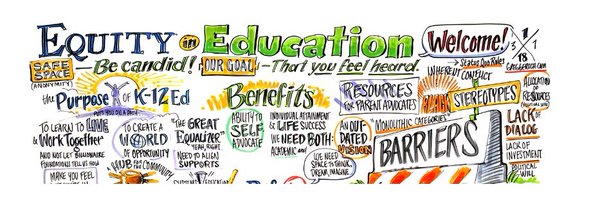 EQUITY in EDUCATION
Welcome!
3/1/18
Status Quo Rules
SAFE SPACE
(ANONYMITY)
Be candid! OUR GOAL - That you feel heard.
the Purpose of K-12 Ed
TO LEARN TO LOVE
& Work Together
AND NOT LET BILLIONAIRE
FOUNDATIONS TELL US HOW
MAKE YOU FEEL
TO CREATE A
WORLD
OF OPPORTUNITY
HUB FOR THE
"the GREAT
Equalizer"
YEAH, RIGHT
NEED TO ALIGN
SUPPORTS
Benefits
ABILITY TO
SELF
ADVOCATE
INDIVIDUAL ATTAINMENT
& LIFE SUCCESS
WE NEED BOTH:
ACADEMIC and
WE NEED
SPACE TO THINK,
DREAM, IMAGINE
RESOURCES
FOR PARENT ADVOCATES
AN OUT-
DATED
VISION
INHERENT CONFLICT
STEREOTYPES
"MONOLITHIC CATEGORIES"
BARRIERS
ALLOCATION
OF
RESOURCES
LACK OF
DIALOG
LACK OF
INVESTMENT
POLITICAL
WILL